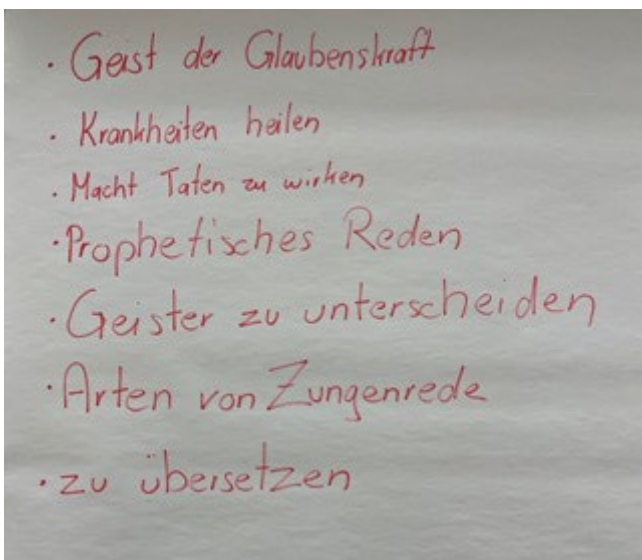 · Geist der Glaubenskraft
· Krankheiten heilen
· Macht Taten zu wirken
· Prophetisches Reden
· Geister zu unterscheiden
· Arten von Zungenrede
· zu übersetzen